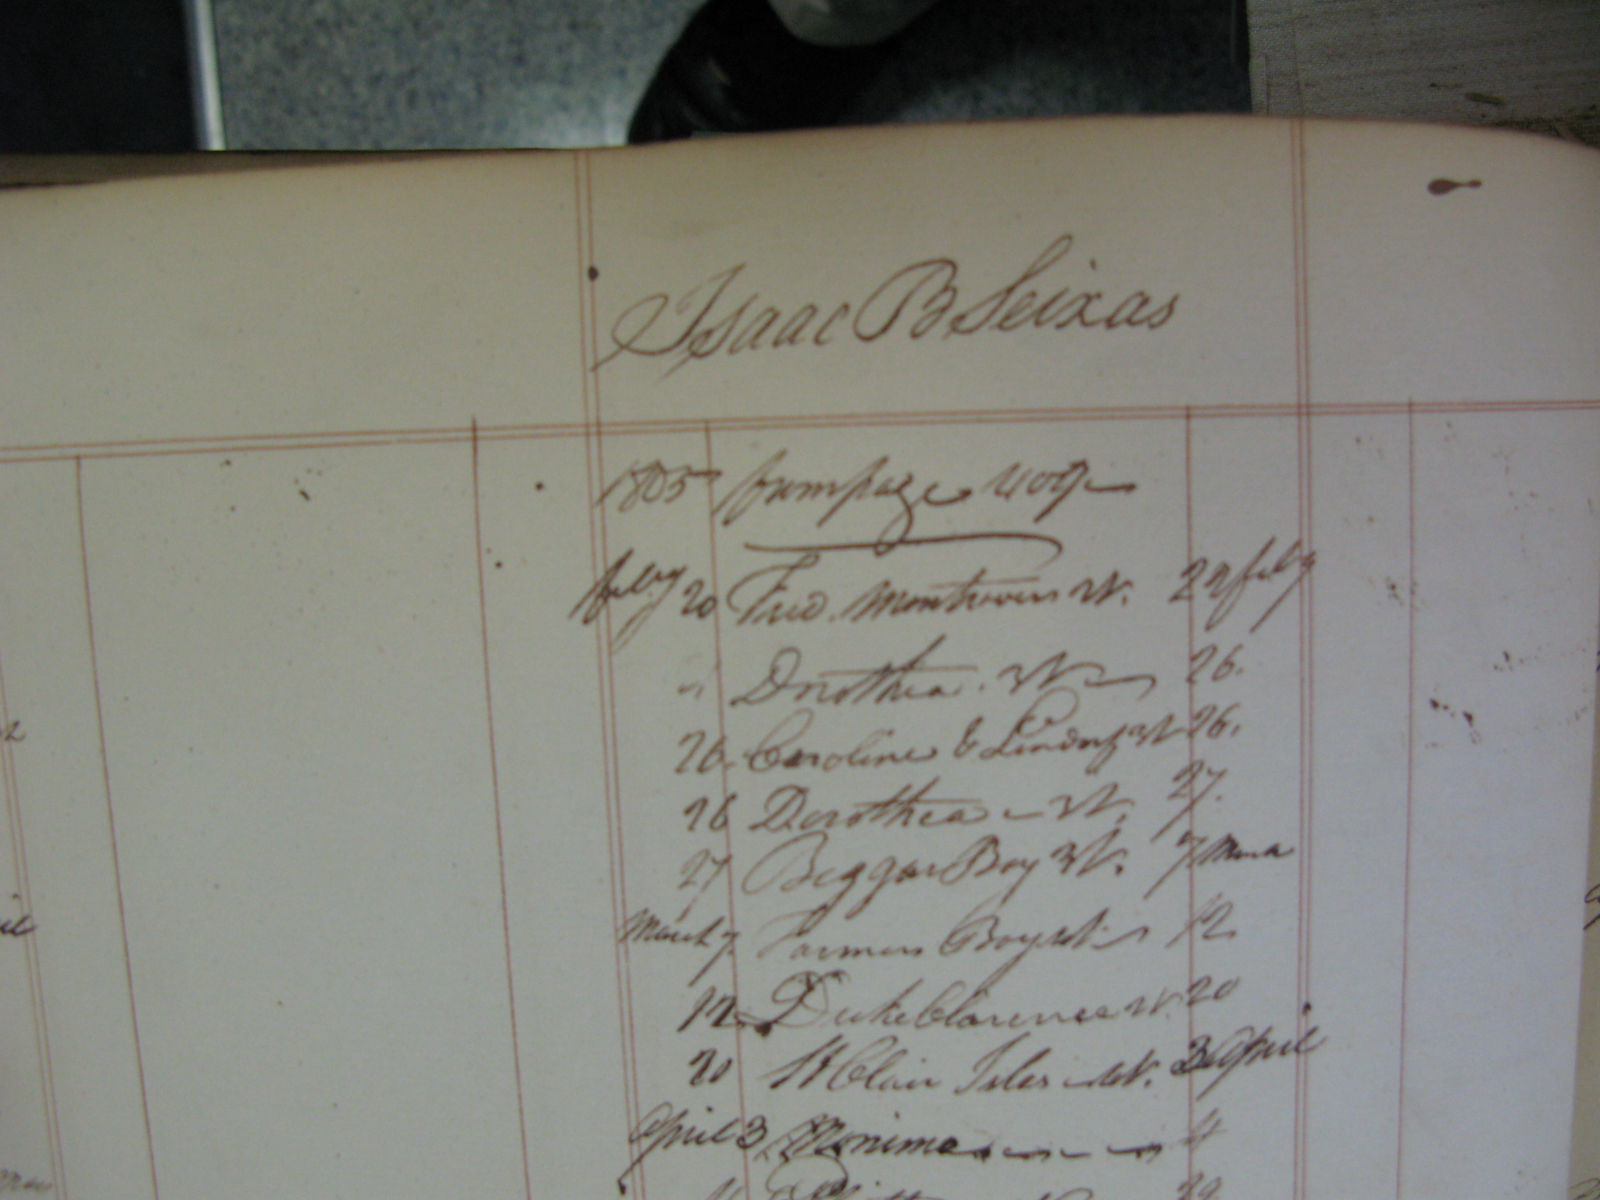 Isaac B Seixas
1805 from page 409
feby 20 Fred. Montrosier V. 22 feby
" Dorothea. V. 26.
26. Caroline & Lindorf V 26.
26 Dorothea V. 27.
27 Beggar Boy V. 7 March
March 7. Farmers Boy 12
12 Duke Clarence V. 20
20 St Clair Isles V. 3 April
April 3. Monima 4